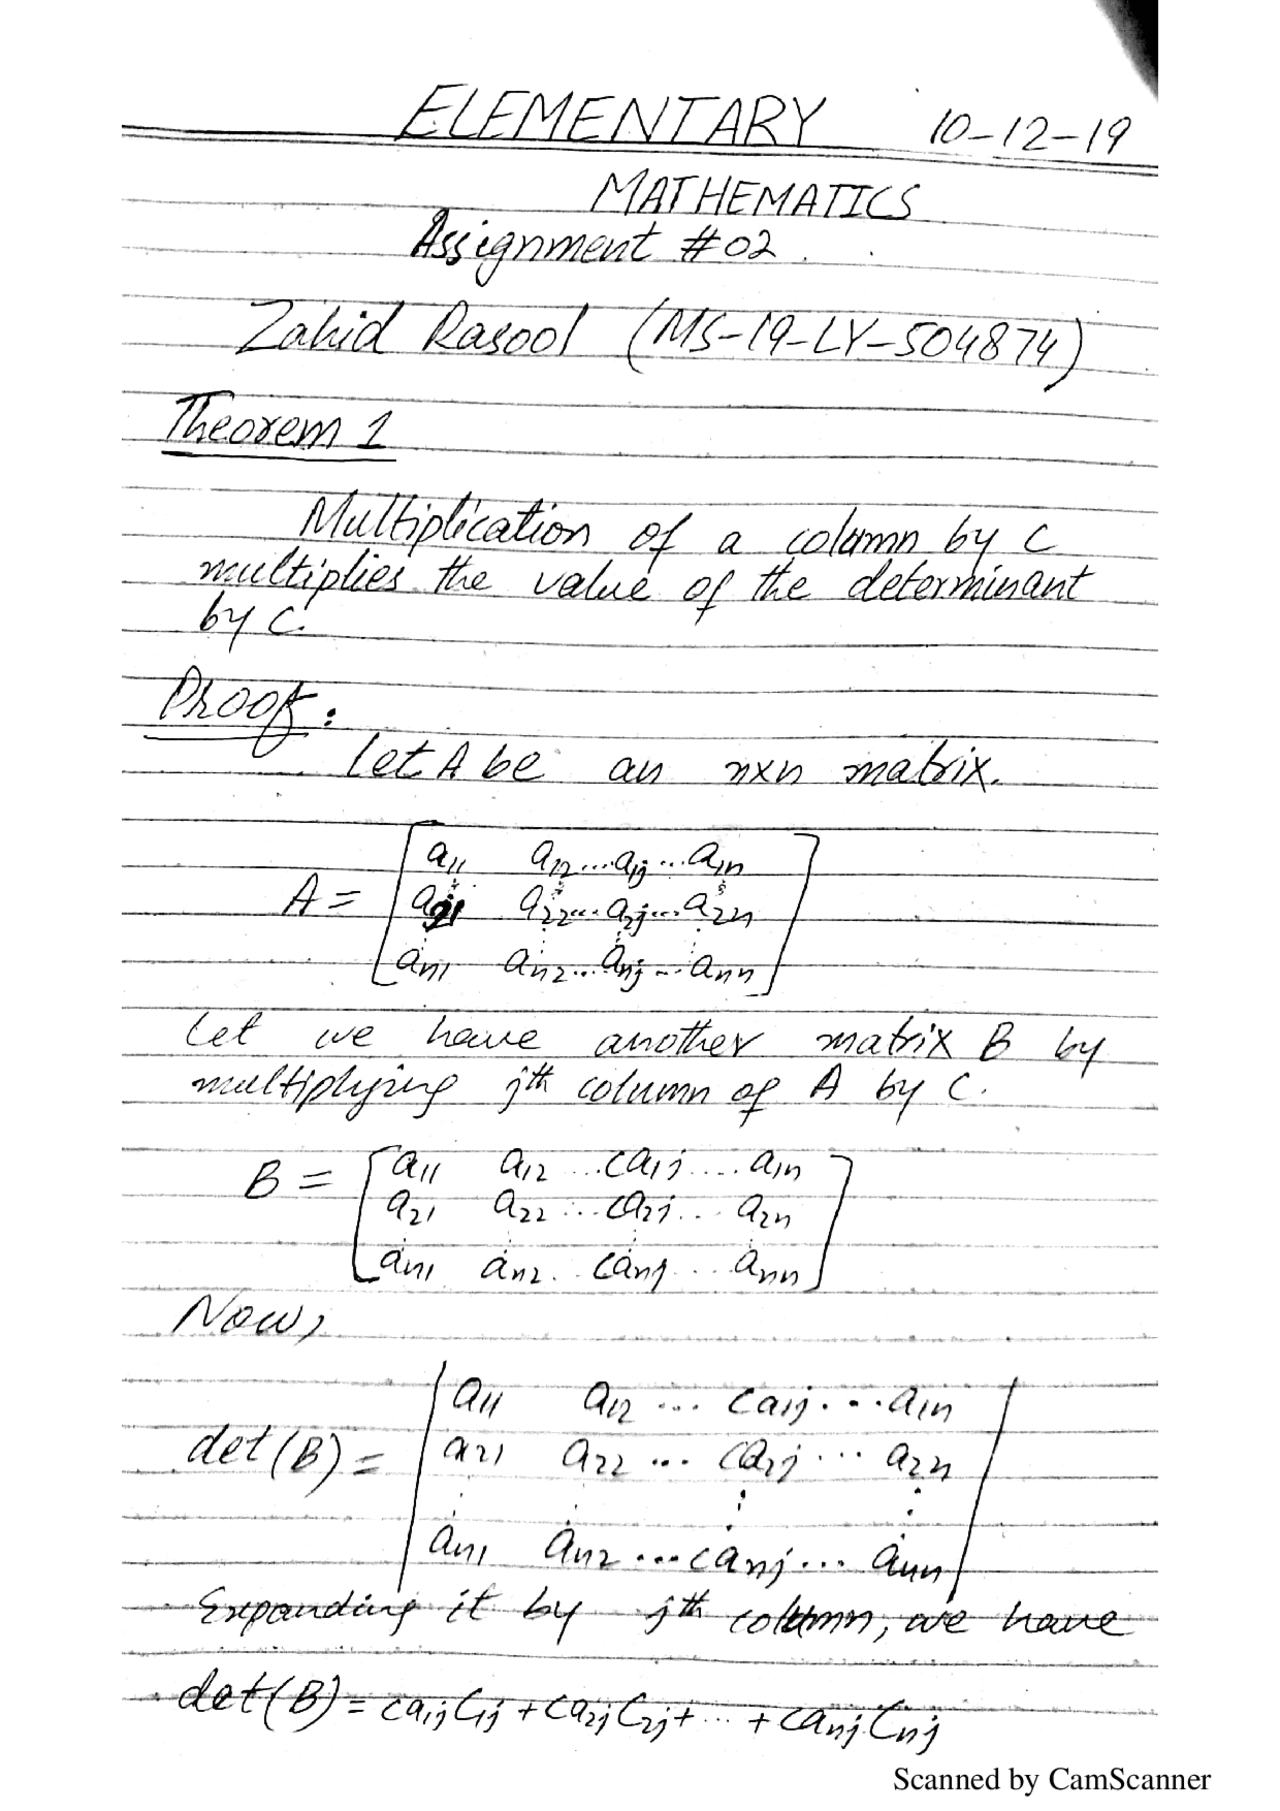 ELEMENTARY 10-12-19
MATHEMATICS
Assignment #02.
Zahid Rasool (MS-19-LY-504874)
Theorem 1
Multiplication of a column by C
multiplies the value of the determinant
by C.
Proof:
Let A be an n×n matrix.
a₁₁ a₁₂...a₁ⱼ...a₁ₙ
A = a₂₁ a₂₂...a₂ⱼ...a₂ₙ
aₙ₁ aₙ₂...aₙⱼ...aₙₙ
Let we have another matrix B by
multiplying jth column of A by C.
B = a₁₁ a₁₂ ...ca₁ⱼ.... a₁ₙ
a₂₁ a₂₂ ...ca₂ⱼ... a₂ₙ
aₙ₁ aₙ₂.. caₙⱼ... aₙₙ
Now,
a₁₁ a₁₂ ... ca₁ⱼ... a₁ₙ
det(B) = a₂₁ a₂₂ ... ca₂ⱼ ... a₂ₙ
aₙ₁ aₙ₂ ...caₙⱼ... aₙₙ
Expanding it by jth column, we have
det(B) = ca₁ⱼC₁ⱼ + ca₂ⱼC₂ⱼ + ... + caₙⱼCₙⱼ
Scanned by CamScanner